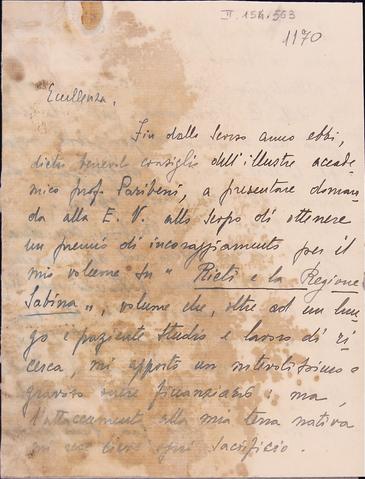 II. 15A. 563
1170
Eccellenza,
Fin dallo scorso anno ebbi,
dietro benevolo consiglio dell'illustre accade-
mico prof. Paribeni, a presentare doman-
da alla E. V. allo scopo di ottenere
un premio di incoraggiamento per il
mio volume su " Rieti e la Regione
Sabina ", volume che, oltre ad un lun-
go e paziente studio e lavoro di ri-
cerca, mi apportò un notevolissimo e
gravoso onere finanziario: ma,
l'attaccamento alla mia terra nativa
ogni sacrificio.